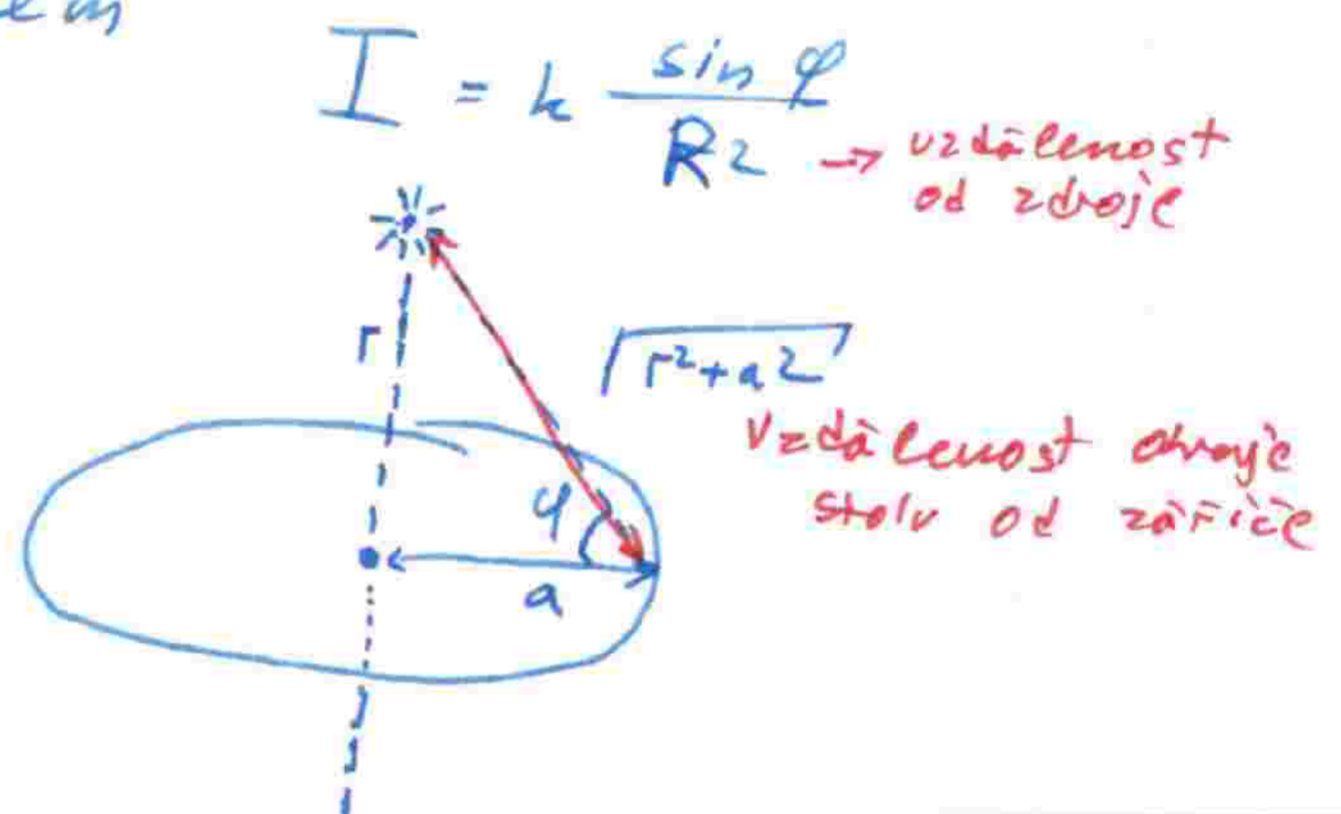 I = k sin φ / R2 → vzdálenost
od zdroje
r
√r²+a2
Vzdálenost
stolu od zářiče
φ
a